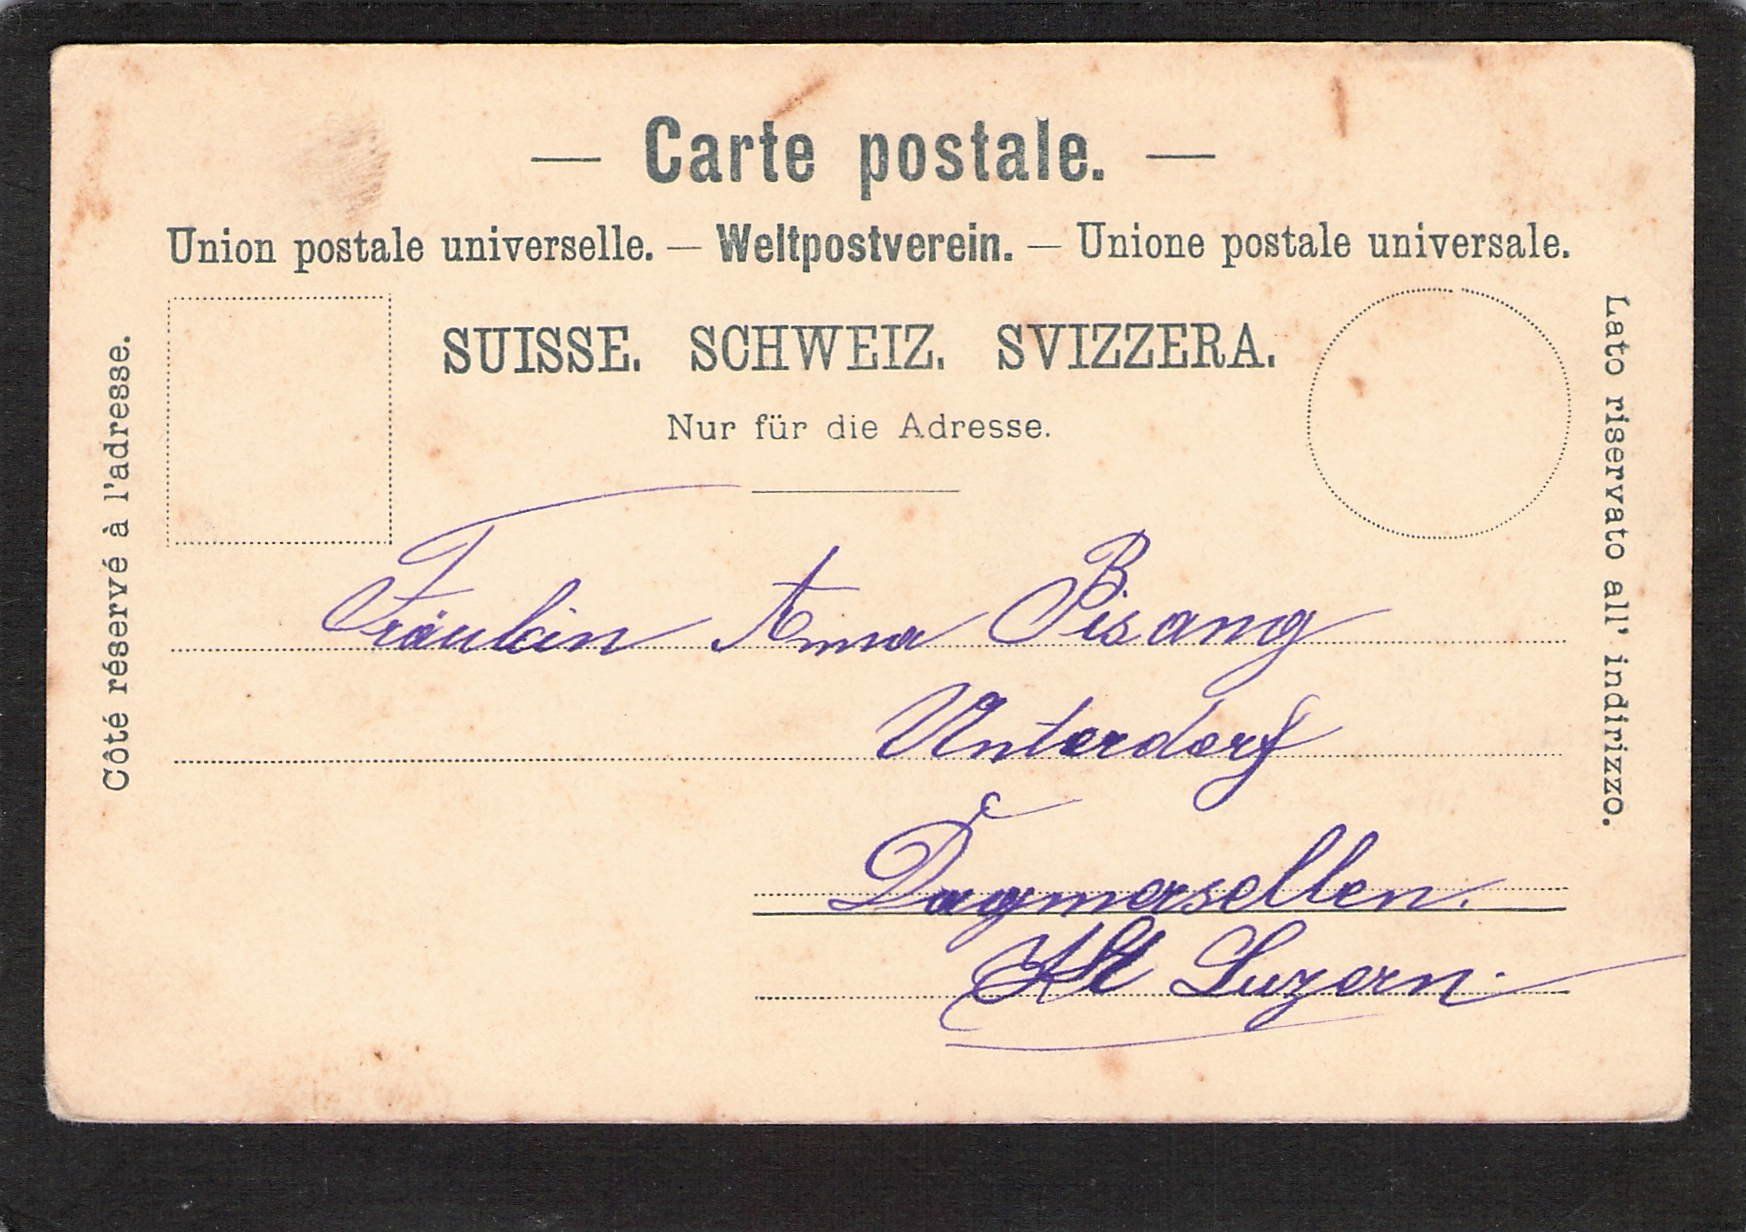 — Carte postale. —
Union postale universelle. — Weltpostverein. — Unione postale universale.
SUISSE. SCHWEIZ. SVIZZERA.
Nur für die Adresse.
Côté réservé à l'adresse.
Lato riservato all' indirizzo.
Fräulein Anna Bisang
Unterdorf
Dagmersellen.
Kt Luzern.